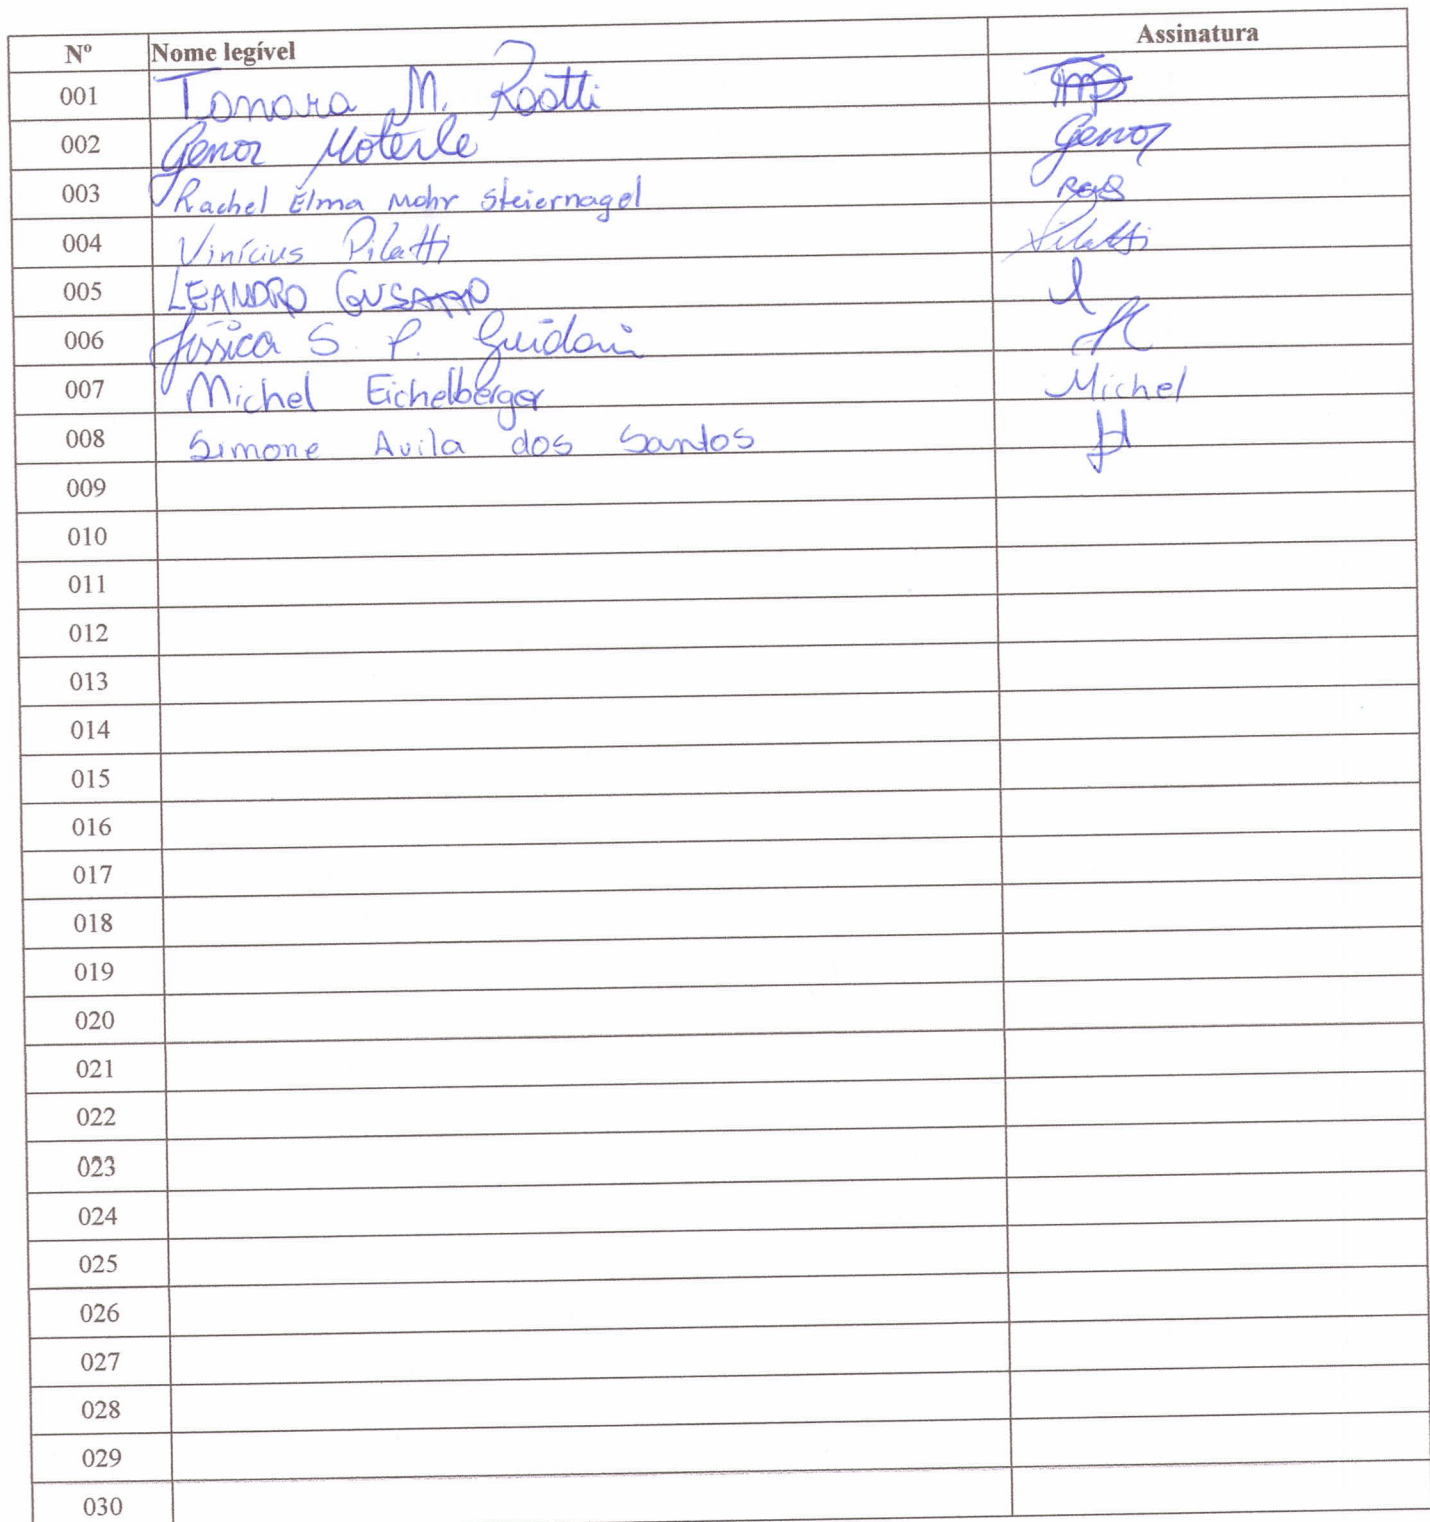 Nº Nome legível Assinatura
001 Tamara M. Rootti
002 Genor Moterle Genor
003 Rachel Elma Mohr Steiernagel
004 Vinícius Pilatti Pilatti
005 LEANDRO
006 Jéssica S. P. Guidoni
007 Michel Eichelberger Michel
008 Simone Avila dos Santos
009
010
011
012
013
014
015
016
017
018
019
020
021
022
023
024
025
026
027
028
029
030